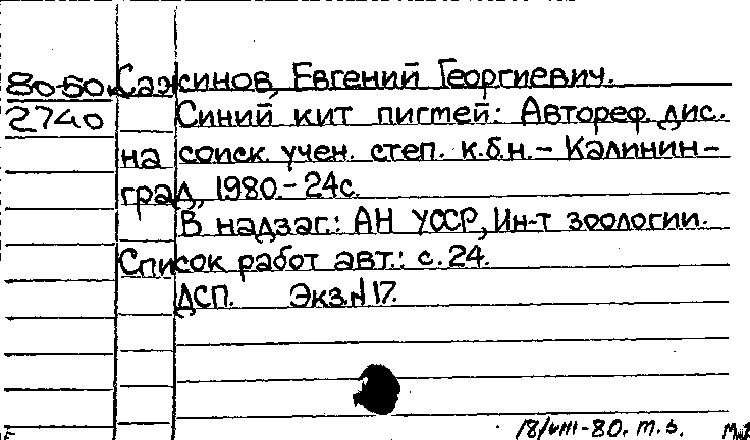 80-50. Сажинов, Евгений Георгиевич.
2740 Синий кит пигмей: Автореф. дис.
на соиск. учен. степ. к.б.н. – Калинин-
град, 1980. – 24с.
В надзаг.: АН УССР, Ин-т зоологии.
Список работ авт.: с. 24.
ДСП. Экз. № 17.
18/VIII-80. т. з.